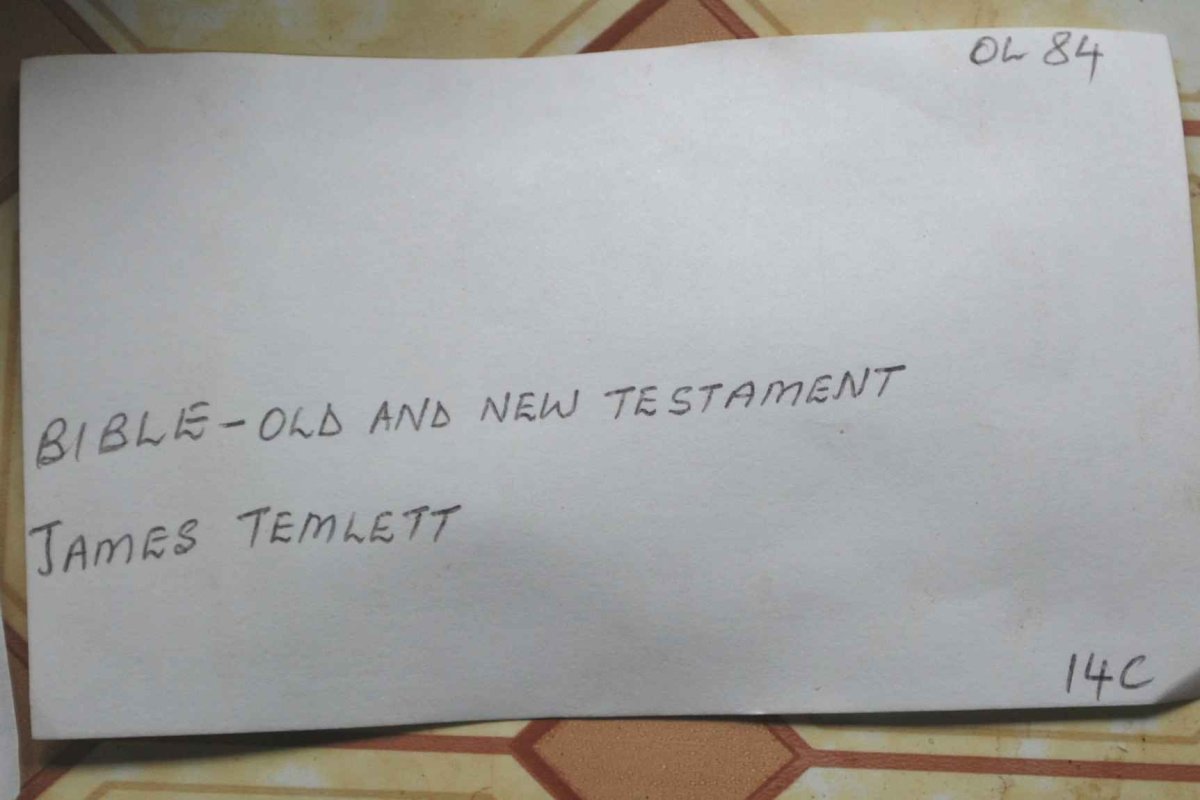 OL 84
BIBLE-OLD AND NEW TESTAMENT
JAMES TEMLETT
14C